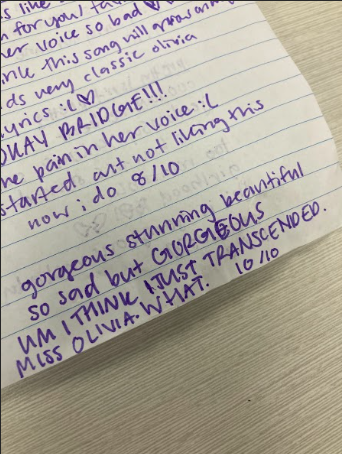 s like
n for you! ta
her voice so bad ♡
ink this song will grow on
ds very classic olivia
lyrics :( ♡
OKAY BRIDGE!!!
he pain in her voice :(
started out not liking this
now i do 8/10
gorgeous stunning beautiful
so sad but GORGEOUS
UM I THINK I JUST TRANSCENDED.
MISS OLIVIA. WHAT. 10/10